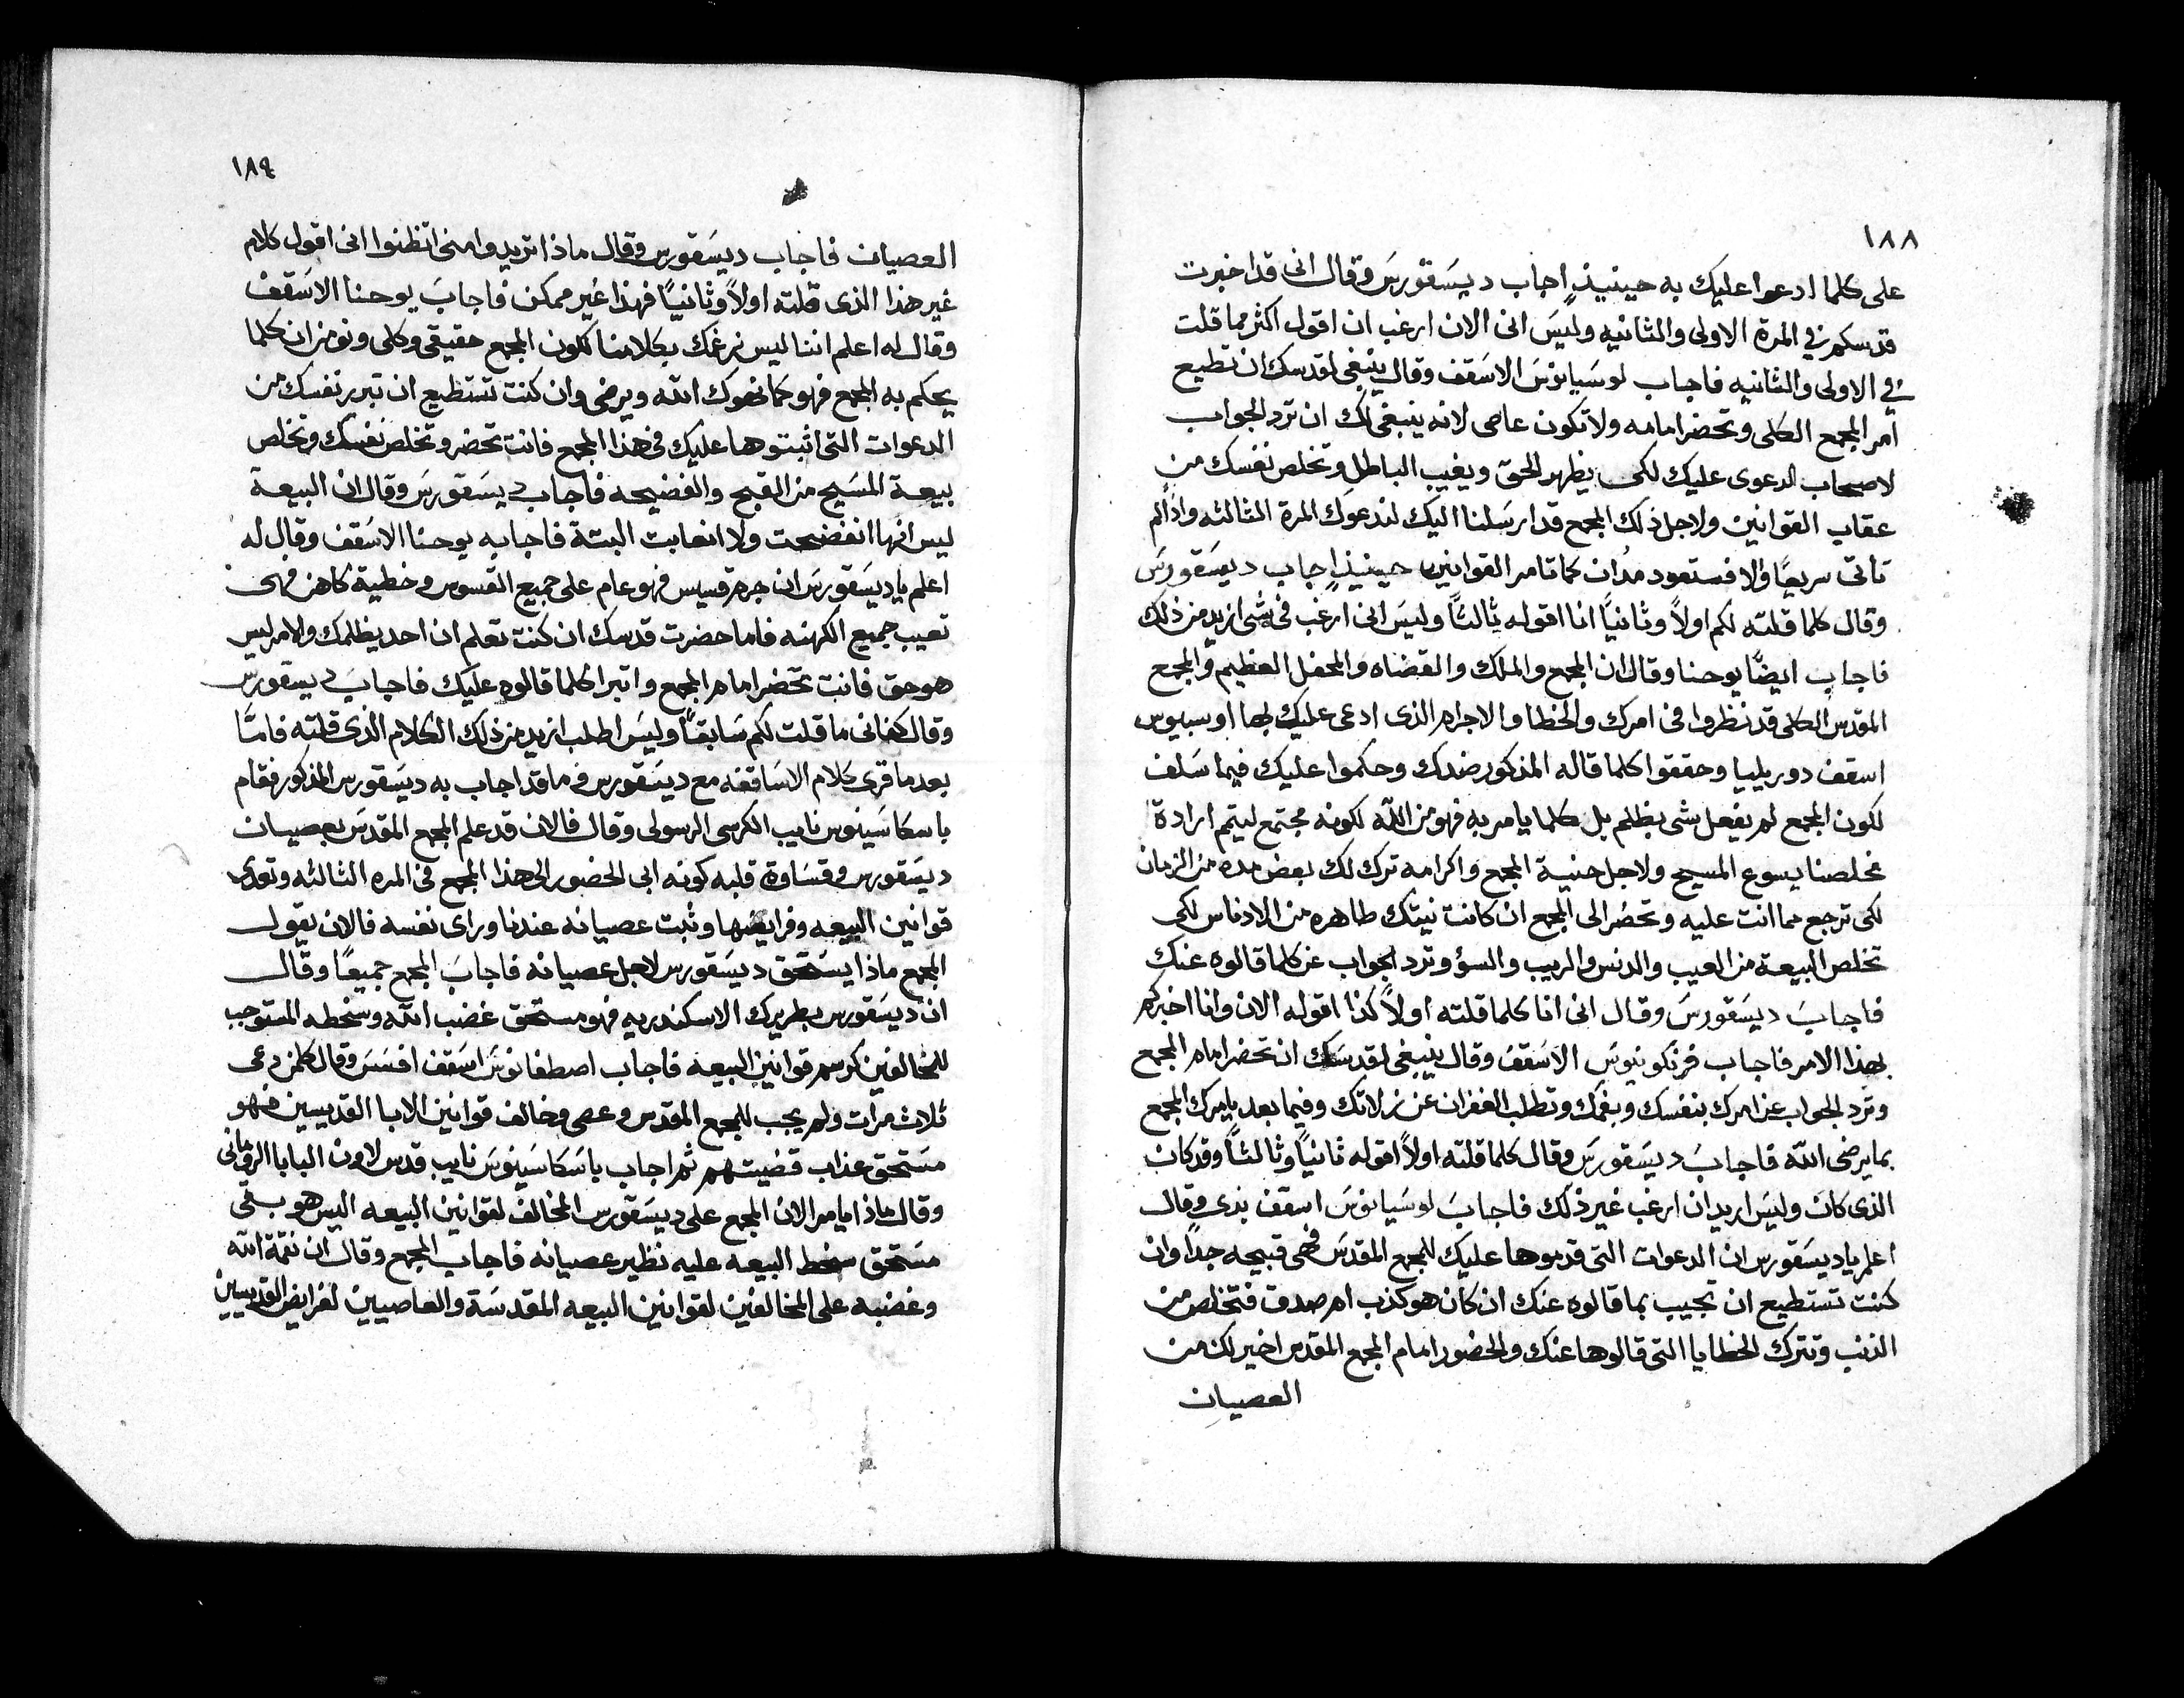 ١٨٨
على كلما ادعوا عليك به حينيذٍ اجاب ديسقورس وقال انى قد اخبرت
قدسكم في المرة الاولى والثانيه وليس انى الان ارغب ان اقول اكثر مما قلت
في الاولى والثانيه فاجاب لوسيانوس الاسقف وقال ينبغى لقدسك ان تطيع
امر المجمع الكلى وتحضر امامه ولا تكون عاصى لانه ينبغى لك ان ترد الجواب
لاصحاب الدعوى عليك لكى يظهر الحق ويغيب الباطل وتخلص نفسك من
عقاب القوانين ولاجل ذلك المجمع قد ارسلنا اليك لندعوك المرة الثالثه واذا لم
تاتى سريعًا والا فستعود مُدان كما تامر القوانين حينيذٍ اجاب ديسقورس
وقال كلما قلته لكم اولاً وثانيًا انا اقوله ثالثًا وليس انى ارغب فى شى ازيد من ذلك
فاجاب ايضًا يوحنا وقال ان المجمع والملك والقضاه والمحفل العظيم والمجمع
المقدس الكلى قد نظروا فى امرك والخطا والاجرام الذى ادعى عليك بها اوسبيوس
اسقف دوريليا وحققوا كلما قاله المذكور ضدك وحكموا عليك فيما سلف
لكون المجمع لم يفعل شى بظلم بل كلما يامر به فهو من الله لكونه مجتمع ليتم ارادة
مخلصنا يسوع المسيح ولاجل حنية المجمع واكرامه ترك لك بعض مده من الزمان
لكى ترجع مما انت عليه وتحضر الى المجمع ان كانت نيتك طاهره من الادناس لكى
تخلص البيعة من العيب والدنس والريب والسؤ وترد الجواب عن كلما قالوه عنك
فاجاب ديسقورس وقال انى انا كلما قلته اولاً كذا اقوله الان وانا اخبركم
بهذا الامر فاجاب فرنكونيوس الاسقف وقال ينبغى لقدسك ان تحضر امام المجمع
وترد الجواب عن امرك بنفسك وبفمك وتطلب الغفران عن زلاتك وفيما بعد يامرك المجمع
بما يرضى الله فاجاب ديسقورس وقال كلما قلته اولاً اقوله ثانيًا وثالثًا وقد كان
الذى كان وليس اريد ان ارغب غير ذلك فاجاب لوسيانوس اسقف بدى وقال
اعلم يا ديسقورس ان الدعوات التى قدموها عليك للمجمع المقدس فهى قبيحه جدًا وان
كنت تستطيع ان تجيب بما قالوه عنك ان كان هو كذب ام صدق فتخلص من
الذنب وتترك الخطايا التى قالوها عنك والحضور امام المجمع المقدس اخير لك من
العصيان
١٨٩
العصيان فاجاب ديسقورس وقال ماذا تريدوا منى اتظنوا انى اقول كلام
غير هذا الذى قلته اولاً وثانيًا فهذا غير ممكن فاجاب يوحنا الاسقف
وقال له اعلم اننا ليس نرغمك بكلامنا لكون المجمع حقيقى وكلى ونومن ان كلما
يحكم به المجمع فهو كما نحوك الله ويرضى وان كنت تستطيع ان تبرر نفسك من
الدعوات التى اثبتوها عليك فى هذا المجمع فانت تحضر وتخلص نفسك وتخلص
بيعة المسيح من القبح والفضيحه فاجاب ديسقورس وقال ان البيعة
ليس انها انفضحت ولا انعابت البتة فاجابه يوحنا الاسقف وقال له
اعلم يا ديسقورس ان جرم قسيس فهو عام على جميع القسوس وخطية كاهن فهى
تعيب جميع الكهنه فاما حضرت قدسك ان كنت تعلم ان احد يظلمك والامر ليس
هو حق فانت تحضر امام المجمع واتبرا كلما قالوه عليك فاجاب ديسقورس
وقال كفانى ما قلت لكم سابقًا وليس اطلب ازيد من ذلك الكلام الذى قلته فامًا
بعد ما قرى كلام الاساقفه مع ديسقورس وما قد اجاب به ديسقورس المذكور فقام
باسكاسينوس نايب الكرسى الرسولى وقال فالان قد علم المجمع المقدس بعصيان
ديسقورس وقساوة قلبه كونه ابى الحضور الى هذا المجمع فى المره الثالثه وتعدى
قوانين البيعه وفرايضها وثبت عصيانه عندنا وراى نفسه فالان يقول
المجمع ماذا يستحق ديسقورس لاجل عصيانه فاجاب المجمع جميعًا وقال
ان ديسقورس بطريرك الاسكندريه فهو مستحق غضب الله وسخطه المستوجب
للمخالفين كرسم قوانين البيعه فاجاب اصطفانوس اسقف افسس وقال كلمن دعى
ثلاث مرات ولم يجب للمجمع المقدس وعصى وخالف قوانين الابا القديسين فهو
مستحق عذاب قضيتهم ثم اجاب باسكاسينوس نايب قدس لاون البابا الرومانى
وقال ماذا يامر الان المجمع على ديسقورس المخالف لقوانين البيعه اليس هو بقى
مستحق سخط البيعه عليه نظير عصيانه فاجاب المجمع وقال ان نقمة الله
وغضبه على المخالفين لقوانين البيعه المقدسة والعاصيين لفرايض القديسين